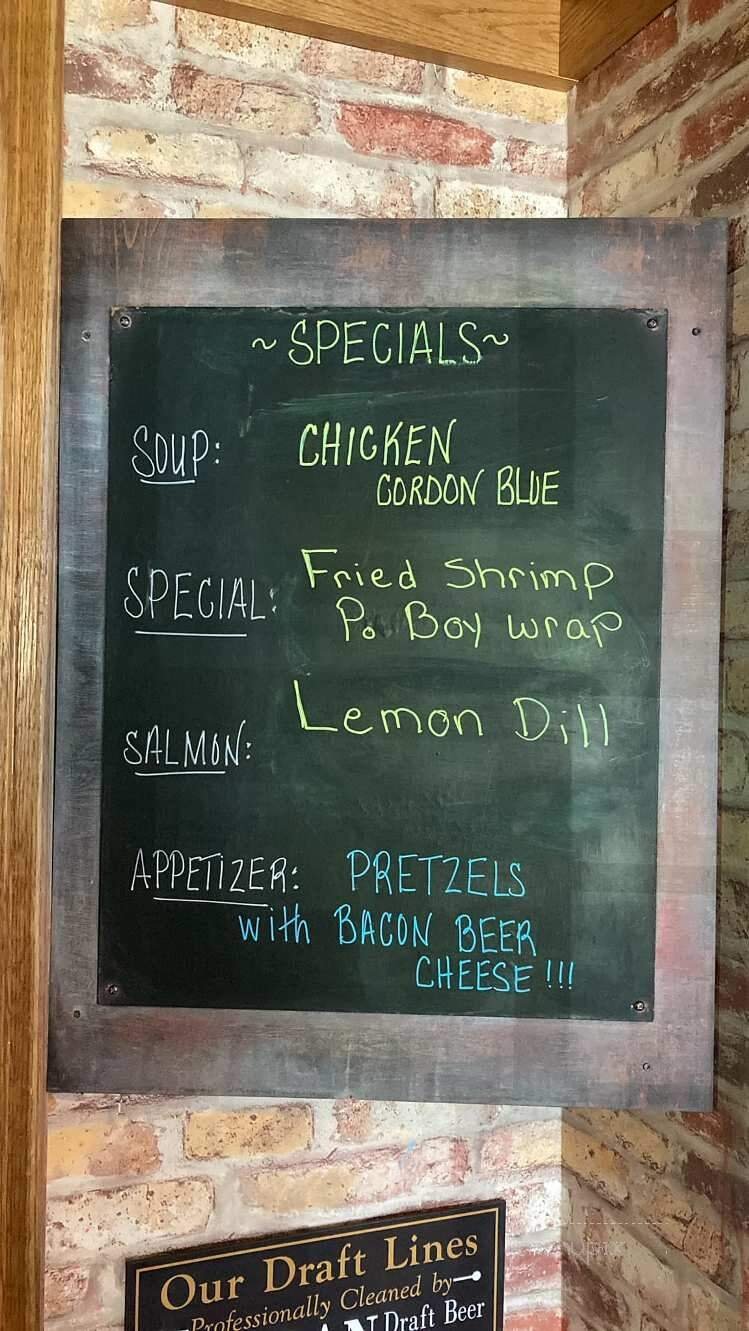 ~SPECIALS~
SOUP: CHICKEN
CORDON BLUE
SPECIAL: Fried Shrimp
Po Boy wrap
SALMON: Lemon Dill
APPETIZER: PRETZELS
with BACON BEER
CHEESE !!!
Our Draft Lines
Professionally Cleaned by
Draft Beer